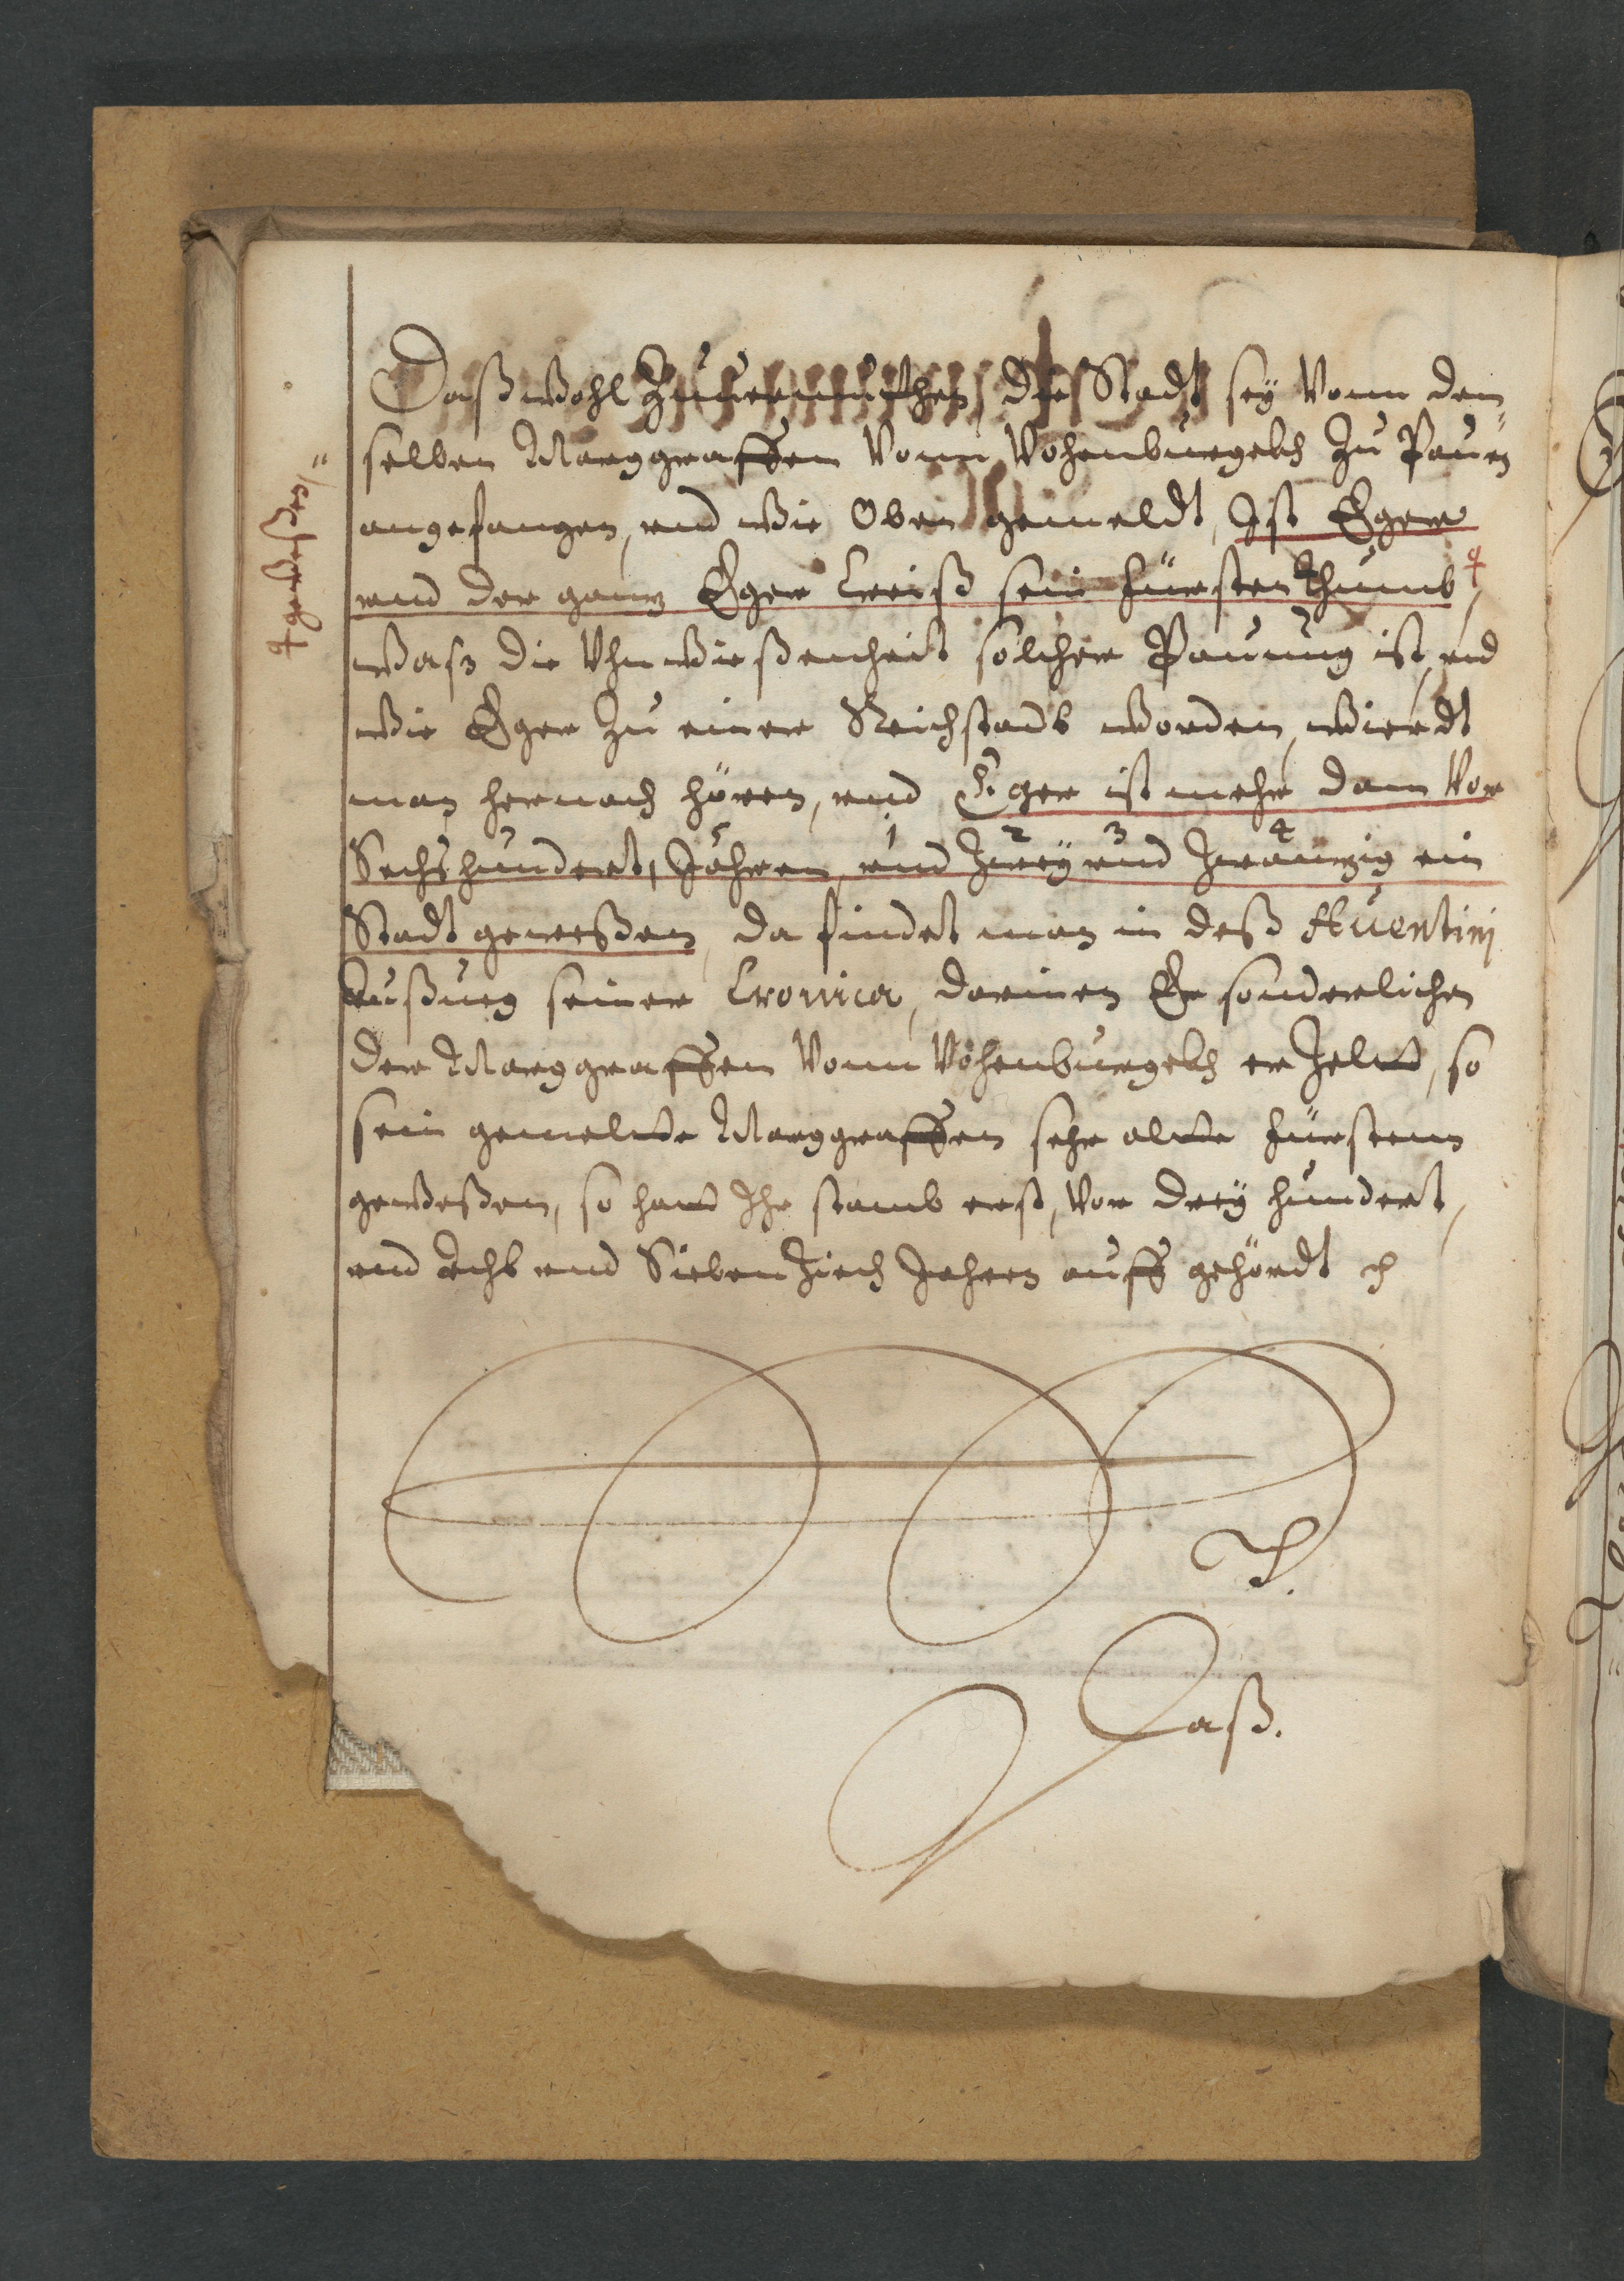 Daß wohl Zuuermuthen, die Stadt sey Vonn den¬
selben Marggraffen Vonn Vohenburgelch Zu Pauen
angefangen, vnd wie Oben gemeldt, Ist Eger
vnd der ganz Eger Creiß sein fürstenthumb ⸸
⸸ geweßen/"
waß die Vhrwießenheit solcher Pauung ist, vnd
wie Eger Zu einer Reichstadt worden, wierdt
man hernach hören, vnd Eger ist mehr dann Vor
5 1 2 3 4
Sechshundert, Jahren, vnd Zwey vnd Zwäntzig ein
Stadt geweeßen, da findet man in deß Auentini
Außzug seiner Cronica, darinen Er sonderlichen
der Marggraffen Vonn Vohenburgelch erzeltt, so
sein gemeltte Marggraffen sehr altte fürstenn
geweßen, so hatt Ihr stamb erst, Vor drey hundert,
vnd Acht vnd Siebenziech Jahren auff gehördt
Daß.